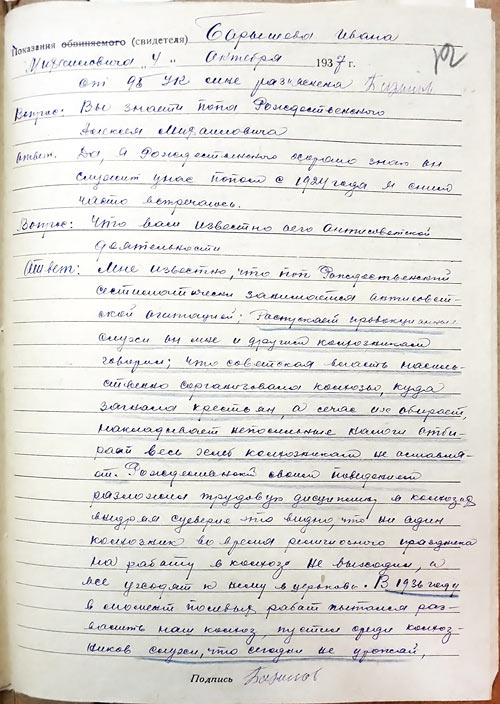 Показания обвиняемого (свидетеля) Барышева Ивана
Михайловича „4" октября 1937 г.
От 95 УК мне разъяснена
Вопрос: Вы знаете попа Рождественского
Алексея Михайловича
Ответ. Да, я Рождественского хорошо знаю он
служит у нас попом с 1924 года я с ним
часто встречаюсь.
Вопрос: Что вам известно о его антисоветской
деятельности
Ответ: Мне известно, что поп Рождественский
систиматически занимается антисовет-
ской агитацией: Распускает провокационные
слухи он мне и другим колхозникам
говорил; что советская власть насиль-
ственно сорганизовала колхозы, куда
загнала крестьян, а сечас их обирает,
накладывает непосильные налоги отби-
рает весь хлеб колхозникам не оставля-
ет. Рождественский своим поведением
разложил трудовую дисциплину в колхозе
внедряя суеверие это видно, что ни один
колхозник во время религиозного праздника
на работу в колхозе не выходил, а
все уходят к нему в церковь. В 1936 году
в момент полевых работ пытался раз-
валить наш колхоз, пустил среди колхоз-
ников слухи, что сегодня не урожай,
Подпись